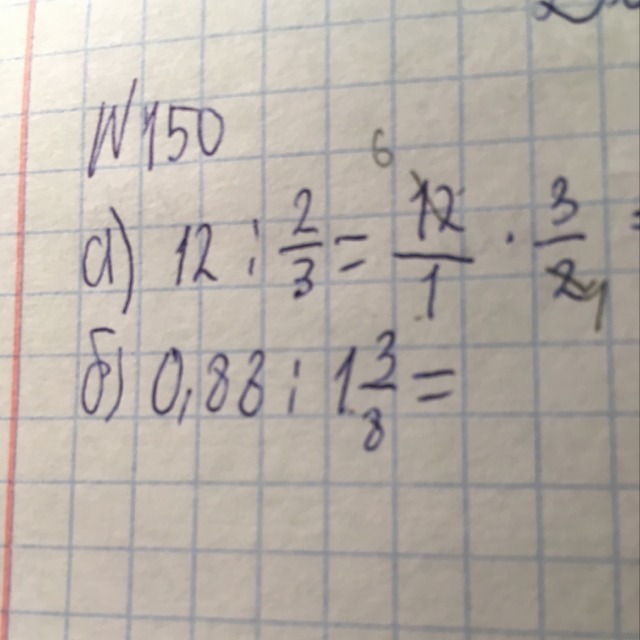 N150
а) 12 : 2/3 = 12/1 · 3/2 =
6
1
б) 0,88 : 1 3/8 =